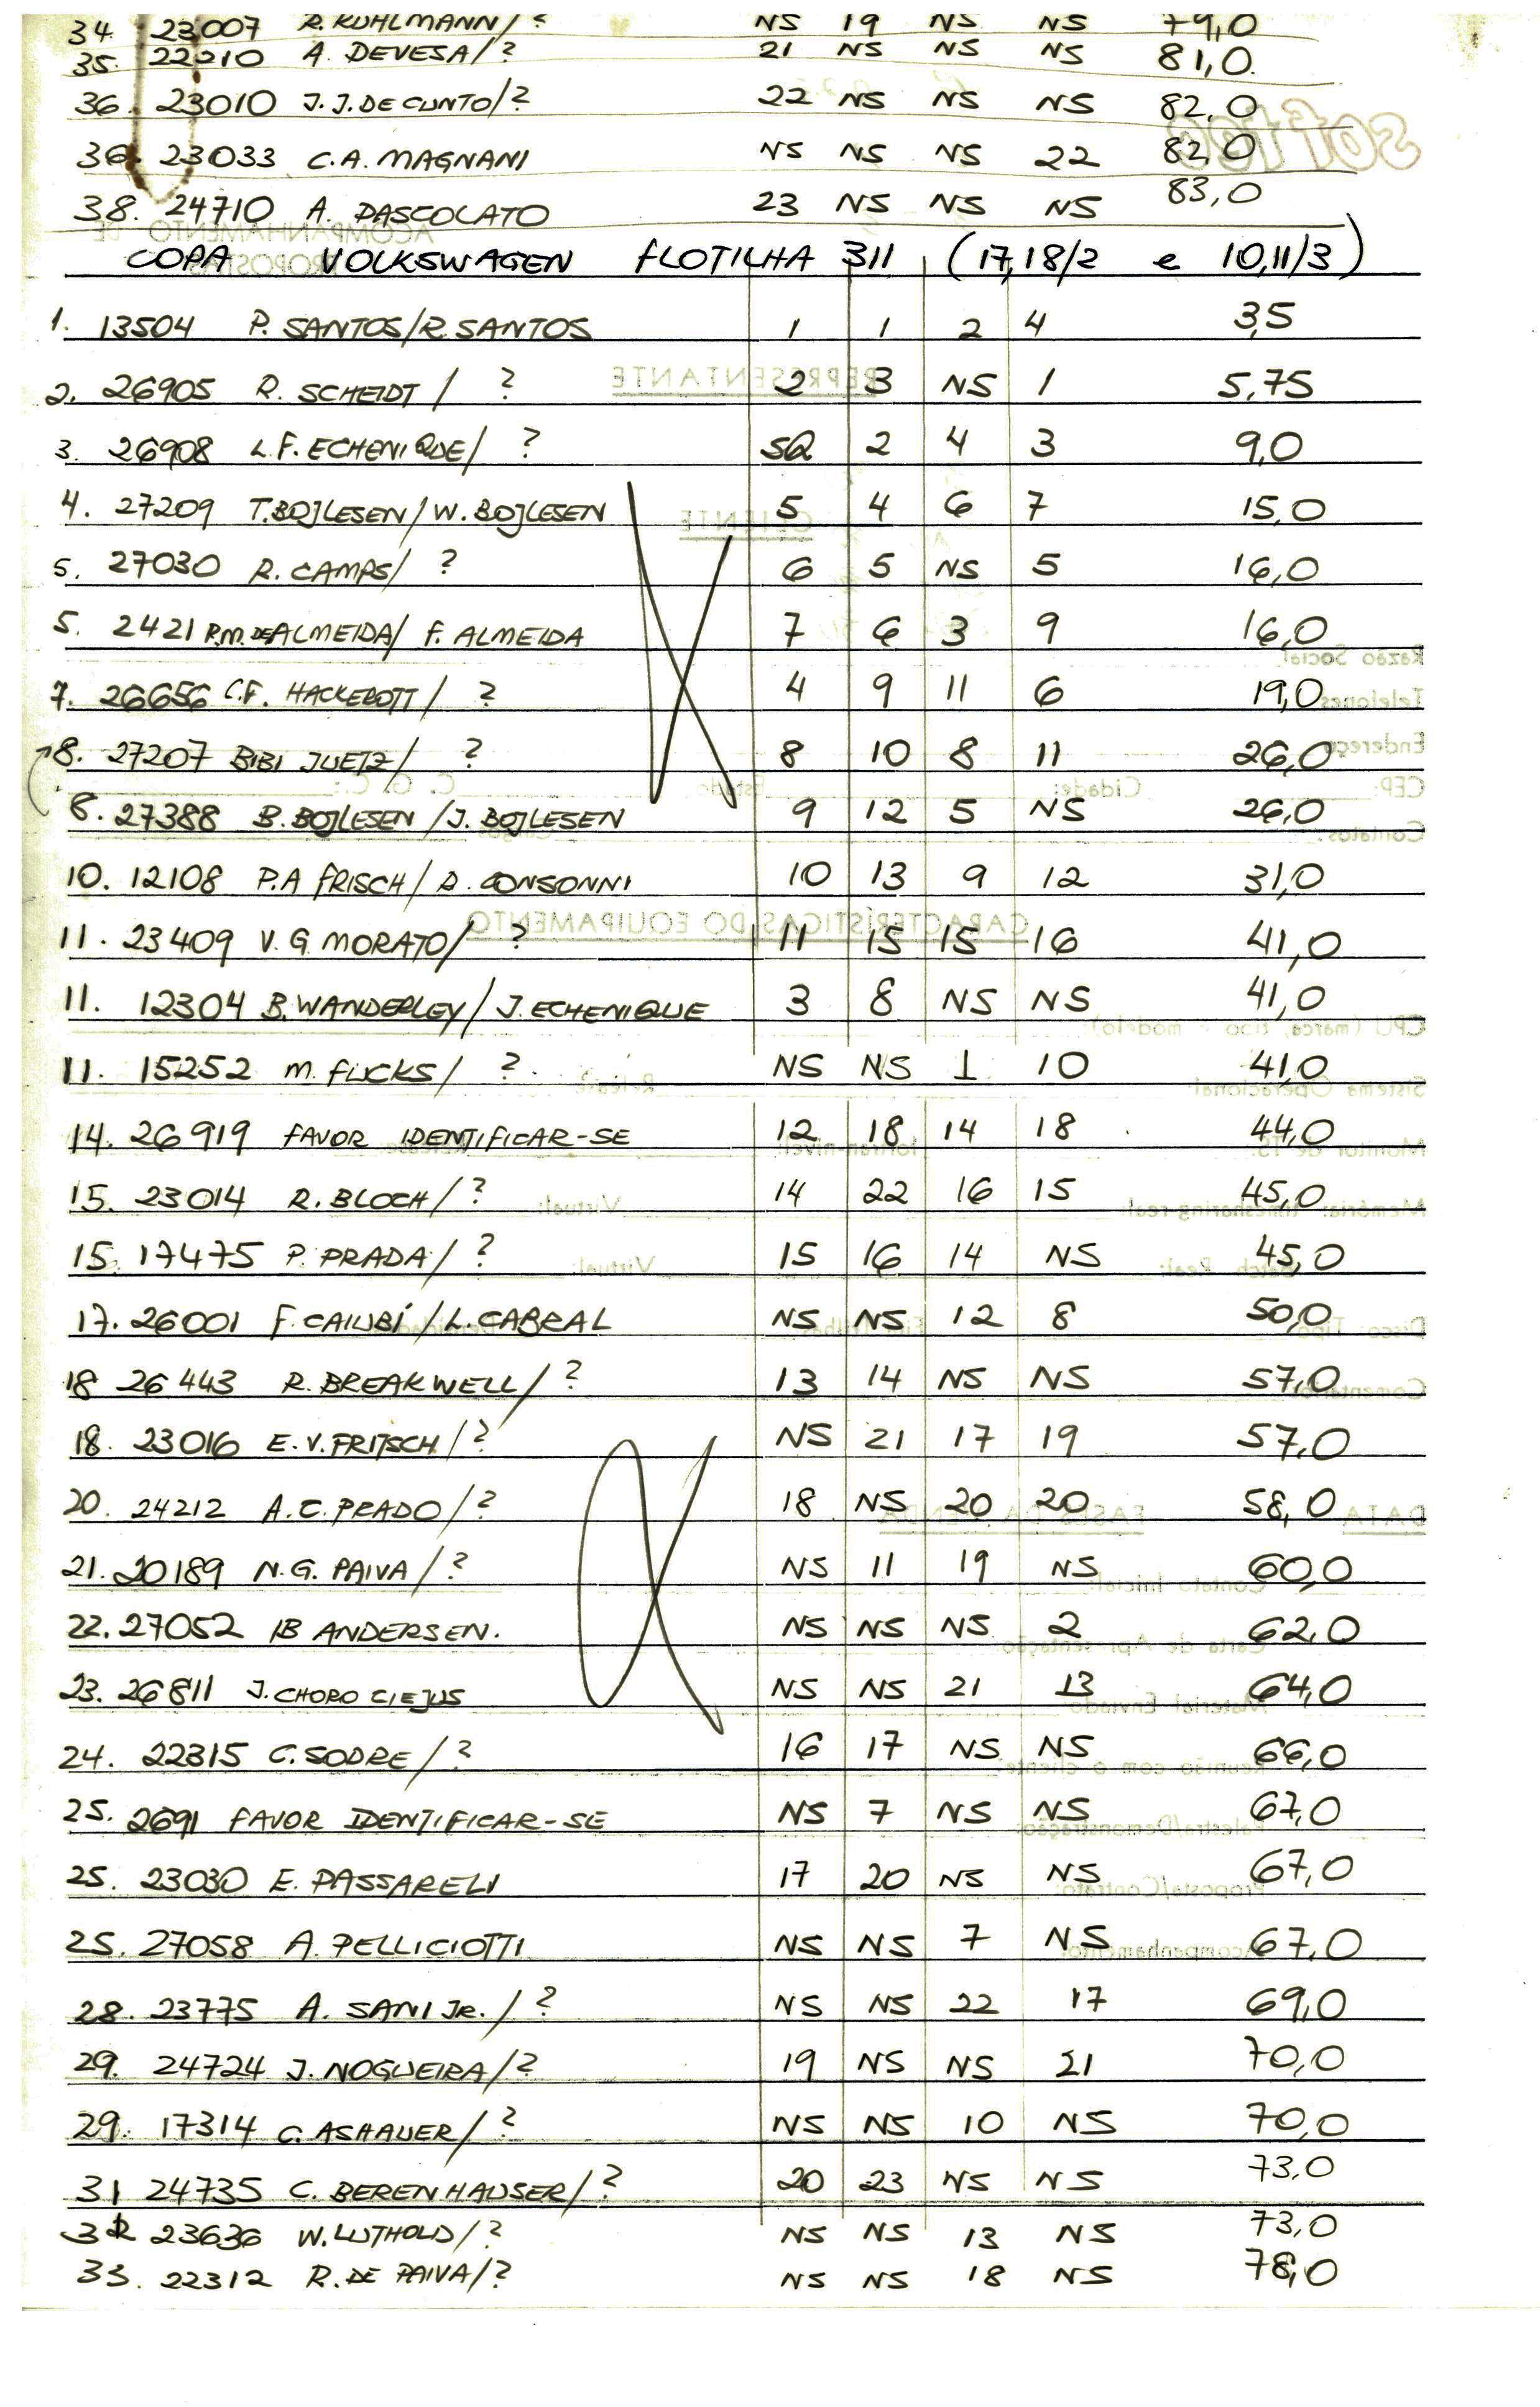 34. 23007 R. KUHLMANN/? NS 19 NS NS 79,0
35. 22210 A. DEVESA/? 21 NS NS NS 81,0
36. 23010 J.J. DE CUNTO/? 22 NS NS NS 82,0
36. 23033 C.A. MAGNANI NS NS NS 22 82,0
38. 24710 A. PASCOLATO 23 NS NS NS 83,0
COPA VOLKSWAGEN FLOTILHA 311 (17,18/2 e 10,11/3)
1. 13504 P. SANTOS/R. SANTOS 1 1 2 4 3,5
2. 26905 R. SCHEIDT / ? 2 3 NS 1 5,75
3. 26908 L.F. ECHENIQUE/ ? SQ 2 4 3 9,0
4. 27209 T. BOJLESEN/W. BOJLESEN 5 4 6 7 15,0
5. 27030 R. CAMPS/ ? 6 5 NS 5 16,0
5. 2421 P.M. DE ALMEIDA/ F. ALMEIDA 7 6 3 9 16,0
7. 26656 C.F. HACKEROTT/ ? 4 9 11 6 19,0
8. 27207 BIBI JUETZ/ ? 8 10 8 11 26,0
8. 27388 B. BOJLESEN /J. BOJLESEN 9 12 5 NS 26,0
10. 12108 P.A FRISCH/ D. CONSONNI 10 13 9 12 31,0
11. 23409 V.G. MORATO/ ? 11 15 15 16 41,0
11. 12304 B. WANDERLEY/ J. ECHENIQUE 3 8 NS NS 41,0
11. 15252 M. FUCKS/ ? NS NS 1 10 41,0
14. 26919 FAVOR IDENTIFICAR-SE 12 18 14 18 44,0
15. 23014 R. BLOCH/? 14 22 16 15 45,0
15. 17475 P. PRADA/ ? 15 16 14 NS 45,0
17. 26001 F. CAIUBÍ /L. CABRAL NS NS 12 8 50,0
18 26443 R. BREAKWELL/? 13 14 NS NS 57,0
18. 23016 E.V. FRITSCH/? NS 21 17 19 57,0
20. 24212 A.C. PRADO/? 18 NS 20 20 58,0
21. 20189 N.G. PAIVA/? NS 11 19 NS 60,0
22. 27052 IB ANDERSEN. NS NS NS 2 62,0
23. 26811 J. CHORO CIEJUS NS NS 21 13 64,0
24. 22315 C. SODRE/? 16 17 NS NS 66,0
25. 2691 FAVOR IDENTIFICAR-SE NS 7 NS NS 67,0
25. 23030 E. PASSARELI 17 20 NS NS 67,0
25. 27058 A. PELLICIOTTI NS NS 7 NS 67,0
28. 23775 A. SANI JR./? NS NS 22 17 69,0
29. 24724 J. NOGUEIRA/? 19 NS NS 21 70,0
29. 17314 C. ASHAUER/? NS NS 10 NS 70,0
31 24735 C. BERENHAUSER/? 20 23 NS NS 73,0
23636 W. LUTHOLD/? NS NS 13 NS 73,0
33. 22312 R. DE PAIVA/? NS NS 18 NS 78,0